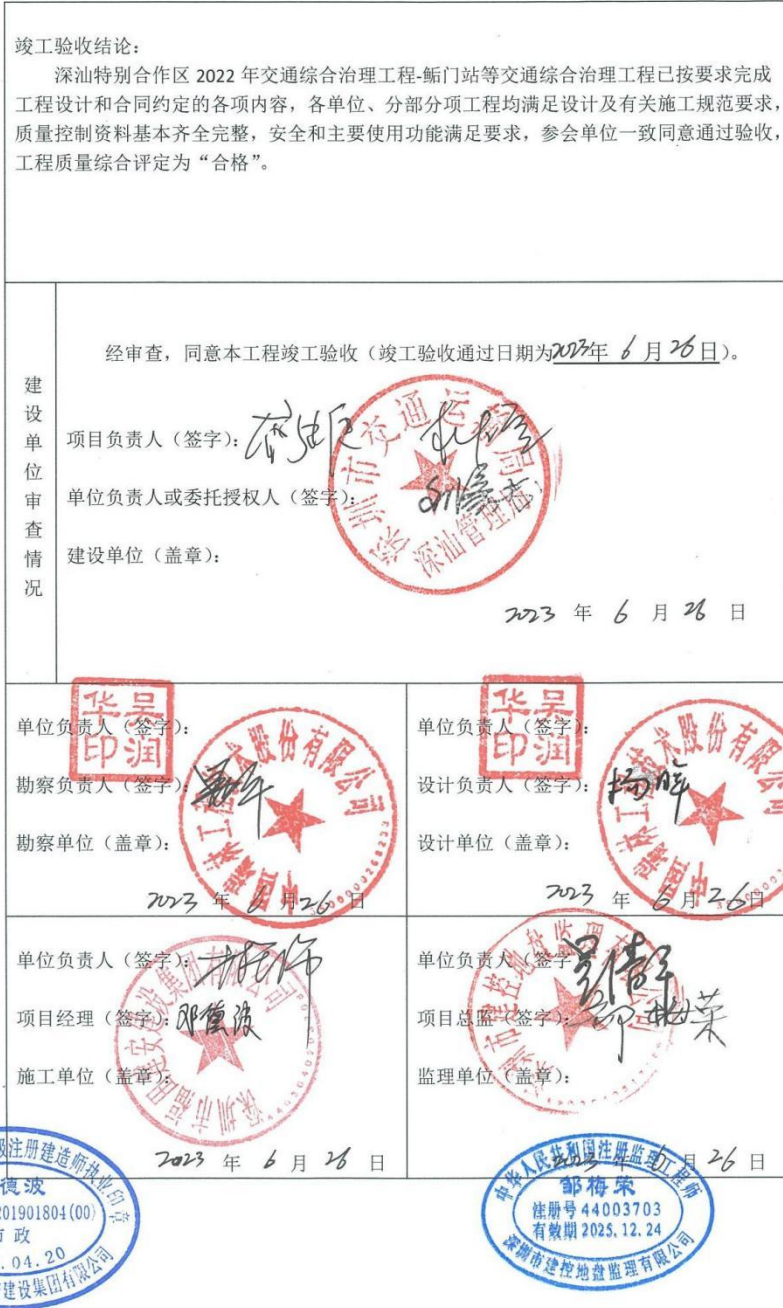 竣工验收结论：
深汕特别合作区 2022 年交通综合治理工程-鲘门站等交通综合治理工程已按要求完成
工程设计和合同约定的各项内容，各单位、分部分项工程均满足设计及有关施工规范要求，
质量控制资料基本齐全完整，安全和主要使用功能满足要求，参会单位一致同意通过验收，
工程质量综合评定为“合格”。
建设单位审查情况
经审查，同意本工程竣工验收（竣工验收通过日期为2023年 6 月 26 日）。
项目负责人（签字）：
单位负责人或委托授权人（签字）：
建设单位（盖章）：
深圳市交通运输局
深汕管理局
2023 年 6 月 26 日
吴润华印
单位负责人（签字）：
勘察负责人（签字）：
勘察单位（盖章）：
2023 年 6 月 26 日
吴润华印
单位负责人（签字）：
设计负责人（签字）：杨晖
设计单位（盖章）：
2023 年 6 月 26 日
单位负责人（签字）：
项目经理（签字）：邓德波
施工单位（盖章）：
深圳市福田建安建设集团有限公司
2023 年 6 月 26 日
单位负责人（签字）：
项目总监（签字）：邹梅荣
监理单位（盖章）：
深圳市建控地盘监理有限公司
2023 年 6 月 26 日
级注册建造师执业印章
德波
201901804(00)
市政
.04.20
建设集团有限公司
中华人民共和国注册监理工程师
邹梅荣
注册号 44003703
有效期 2025.12.24
深圳市建控地盘监理有限公司